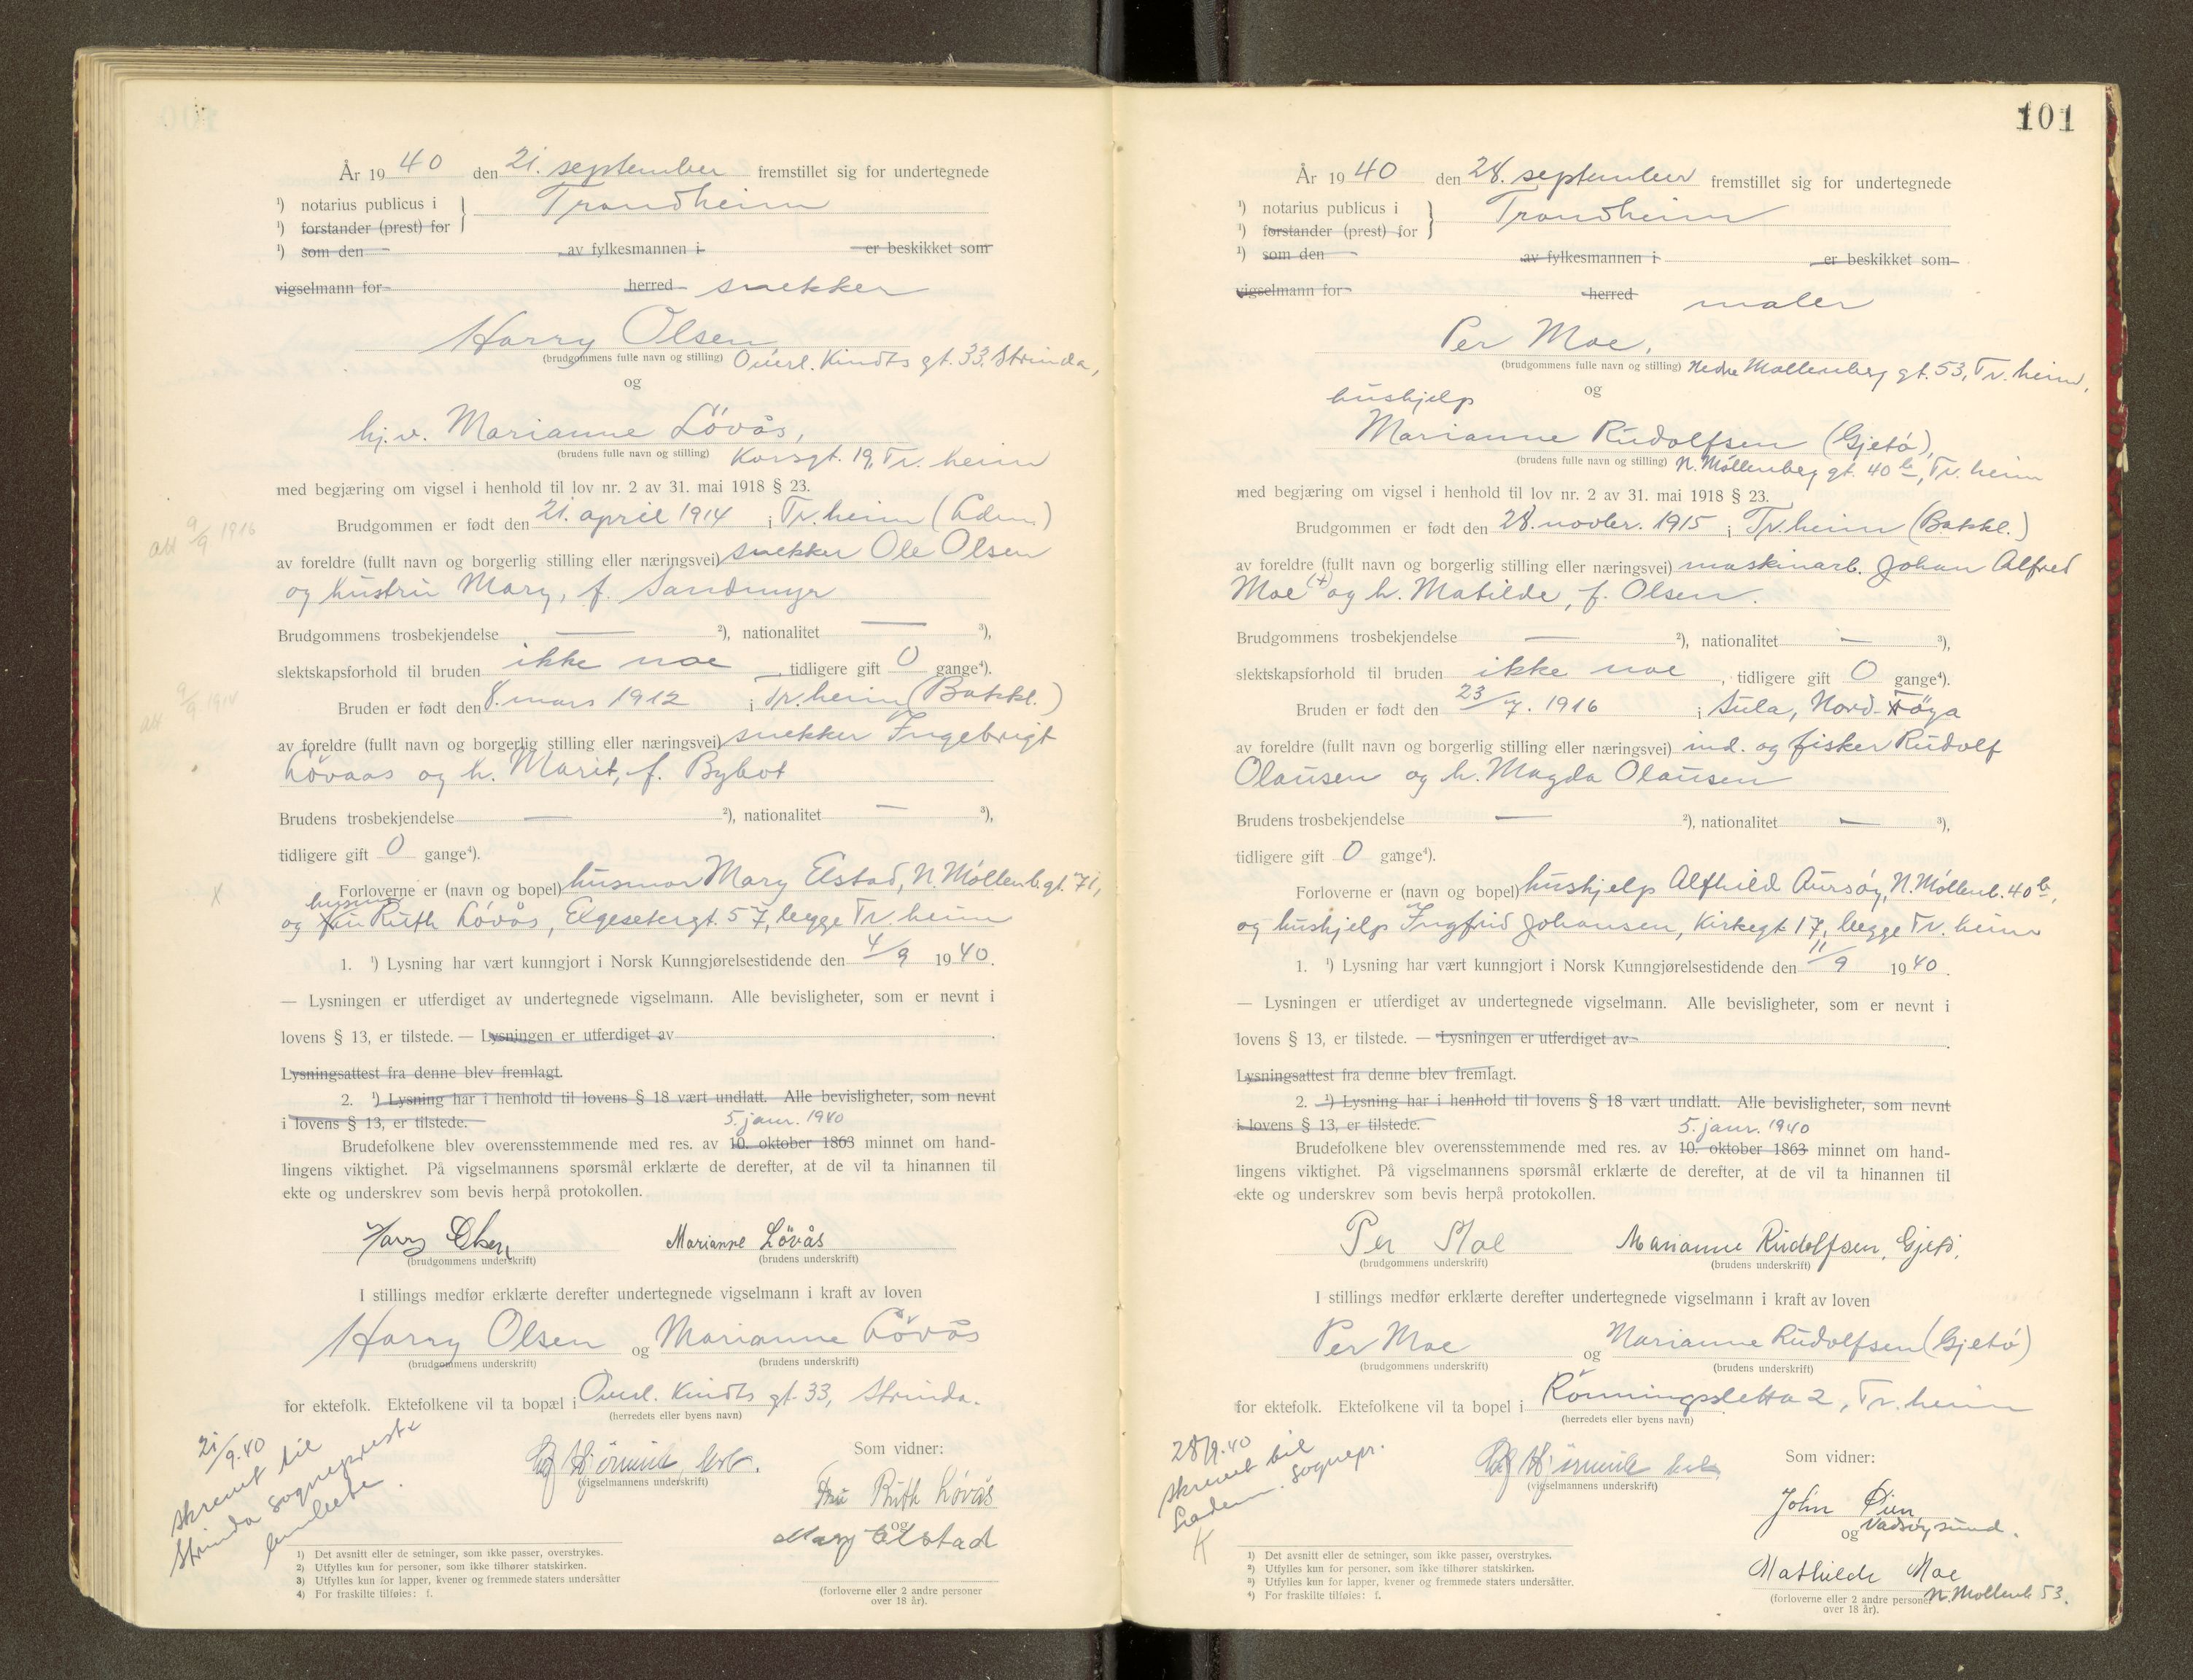 År 19 40 den 21. september fremstillet sig for undertegnede
¹) notarius publicus i } Trondheim
¹) forstander (prest) for
¹) som den av fylkesmannen i er beskikket som
vigselmann for herred snekker
Harry Olsen
(brudgommens fulle navn og stilling) Oberl. Kindts gt. 33, Strinda,
og
hj.v. Marianne Lövås,
(brudens fulle navn og stilling) Korsgt. 19, Tr. heim
med begjæring om vigsel i henhold til lov nr. 2 av 31. mai 1918 § 23.
Brudgommen er født den 21. april 1914 i Tr.heim
att 9/9 1916
av foreldre (fullt navn og borgerlig stilling eller næringsvei) snekker Ole Olsen
og hustru Mary, f. Sandmyr
Brudgommens trosbekjendelse — ²), nationalitet — ³),
slektskapsforhold til bruden ikke noe, tidligere gift 0 gange⁴).
att 9/9 1914
Bruden er født den 8. mars 1912 i Tr.heim (Bakkl.)
av foreldre (fullt navn og borgerlig stilling eller næringsvei) snekker Ingebrigt
Lövaas og h. Marit, f. Bybot
Brudens trosbekjendelse — ²), nationalitet — ³),
tidligere gift 0 gange⁴).
X
Forloverne er (navn og bopel) husmor Mary Elstad, N. Möllenb.gt. 71,
husmor
og Ruth Lövås, Elgesetergt. 57, begge Tr. heim
1. ¹) Lysning har vært kunngjort i Norsk Kunngjørelsestidende den 4/9 1940.
— Lysningen er utferdiget av undertegnede vigselmann. Alle bevisligheter, som er nevnt i
lovens § 13, er tilstede. — Lysningen er utferdiget av
Lysningsattest fra denne blev fremlagt.
2. ¹) Lysning har i henhold til lovens § 18 vært undlatt. Alle bevisligheter, som nevnt
i lovens § 13, er tilstede. 5. janr. 1940
Brudefolkene blev overensstemmende med res. av 10. oktober 1863 minnet om hand-
lingens viktighet. På vigselmannens spørsmål erklærte de derefter, at de vil ta hinannen til
ekte og underskrev som bevis herpå protokollen.
Harry Olsen Marianne Lövås
(brudgommens underskrift) (brudens underskrift)
I stillings medfør erklærte derefter undertegnede vigselmann i kraft av loven
Harry Olsen og Marianne Lövås
(brudgommens underskrift) (brudens underskrift)
for ektefolk. Ektefolkene vil ta bopæl i Oberl. Kindts gt. 33, Strinda.
(herredets eller byens navn)
21/9.40
skrevet til
Strinda sogneprest
(vigselmannens underskrift)
Som vidner:
Fru Ruth Lövås
og
Mary Elstad
(forloverne eller 2 andre personer
over 18 år).
1) Det avsnitt eller de setninger, som ikke passer, overstrykes.
2) Utfylles kun for personer, som ikke tilhører statskirken.
3) Utfylles kun for lapper, kvener og fremmede staters undersåtter
4) For fraskilte tilføies: f.
101
År 19 40 den 28. september fremstillet sig for undertegnede
¹) notarius publicus i } Trondheim
¹) forstander (prest) for
¹) som den av fylkesmannen i er beskikket som
vigselmann for herred maler
Per Moe,
(brudgommens fulle navn og stilling) Nedre Möllenberg gt. 53, Tr. heim,
og
hushjelp
Marianne Rudolfsen (Gjetö),
(brudens fulle navn og stilling) N. Möllenberg gt. 40 b, Tr. heim
med begjæring om vigsel i henhold til lov nr. 2 av 31. mai 1918 § 23.
Brudgommen er født den 28. novbr. 1915 i Tr.heim (Bakkl.)
av foreldre (fullt navn og borgerlig stilling eller næringsvei) maskinarb. Johan Alfred
Moe (+) og h. Matilde, f. Olsen.
Brudgommens trosbekjendelse — ²), nationalitet — ³),
slektskapsforhold til bruden ikke noe, tidligere gift 0 gange⁴).
Bruden er født den 23/7. 1916 i Sula, Nord-Föya
av foreldre (fullt navn og borgerlig stilling eller næringsvei) ind. og fisker Rudolf
Olausen og h. Magda Olausen
Brudens trosbekjendelse — ²), nationalitet — ³),
tidligere gift 0 gange⁴).
Forloverne er (navn og bopel) hushjelp Alfhild Aursöy, N. Möllenb. 40 b,
og hushjelp Ingfrid Johansen, Kirkegt. 17, begge Tr. heim
1. ¹) Lysning har vært kunngjort i Norsk Kunngjørelsestidende den 11/9 1940.
— Lysningen er utferdiget av undertegnede vigselmann. Alle bevisligheter, som er nevnt i
lovens § 13, er tilstede. — Lysningen er utferdiget av
Lysningsattest fra denne blev fremlagt.
2. ¹) Lysning har i henhold til lovens § 18 vært undlatt. Alle bevisligheter, som nevnt
i lovens § 13, er tilstede. 5. janr. 1940
Brudefolkene blev overensstemmende med res. av 10. oktober 1863 minnet om hand-
lingens viktighet. På vigselmannens spørsmål erklærte de derefter, at de vil ta hinannen til
ekte og underskrev som bevis herpå protokollen.
Per Moe Marianne Rudolfsen, Gjetö,
(brudgommens underskrift) (brudens underskrift)
I stillings medfør erklærte derefter undertegnede vigselmann i kraft av loven
Per Moe og Marianne Rudolfsen (Gjetö)
(brudgommens underskrift) (brudens underskrift)
for ektefolk. Ektefolkene vil ta bopel i Rönningsletta 2, Tr. heim
(herredets eller byens navn)
28/9.40
skrevet til
Ladem. sognepr.
K
(vigselmannens underskrift)
Som vidner:
John Øien
og Vadsöysund.
Mathilde Moe
N. Möllenb 53.
(forloverne eller 2 andre personer
over 18 år).
¹) Det avsnitt eller de setninger, som ikke passer, overstrykes.
²) Utfylles kun for personer, som ikke tilhører statskirken.
³) Utfylles kun for lapper, kvener og fremmede staters undersåtter.
⁴) For fraskilte tilføies: f.